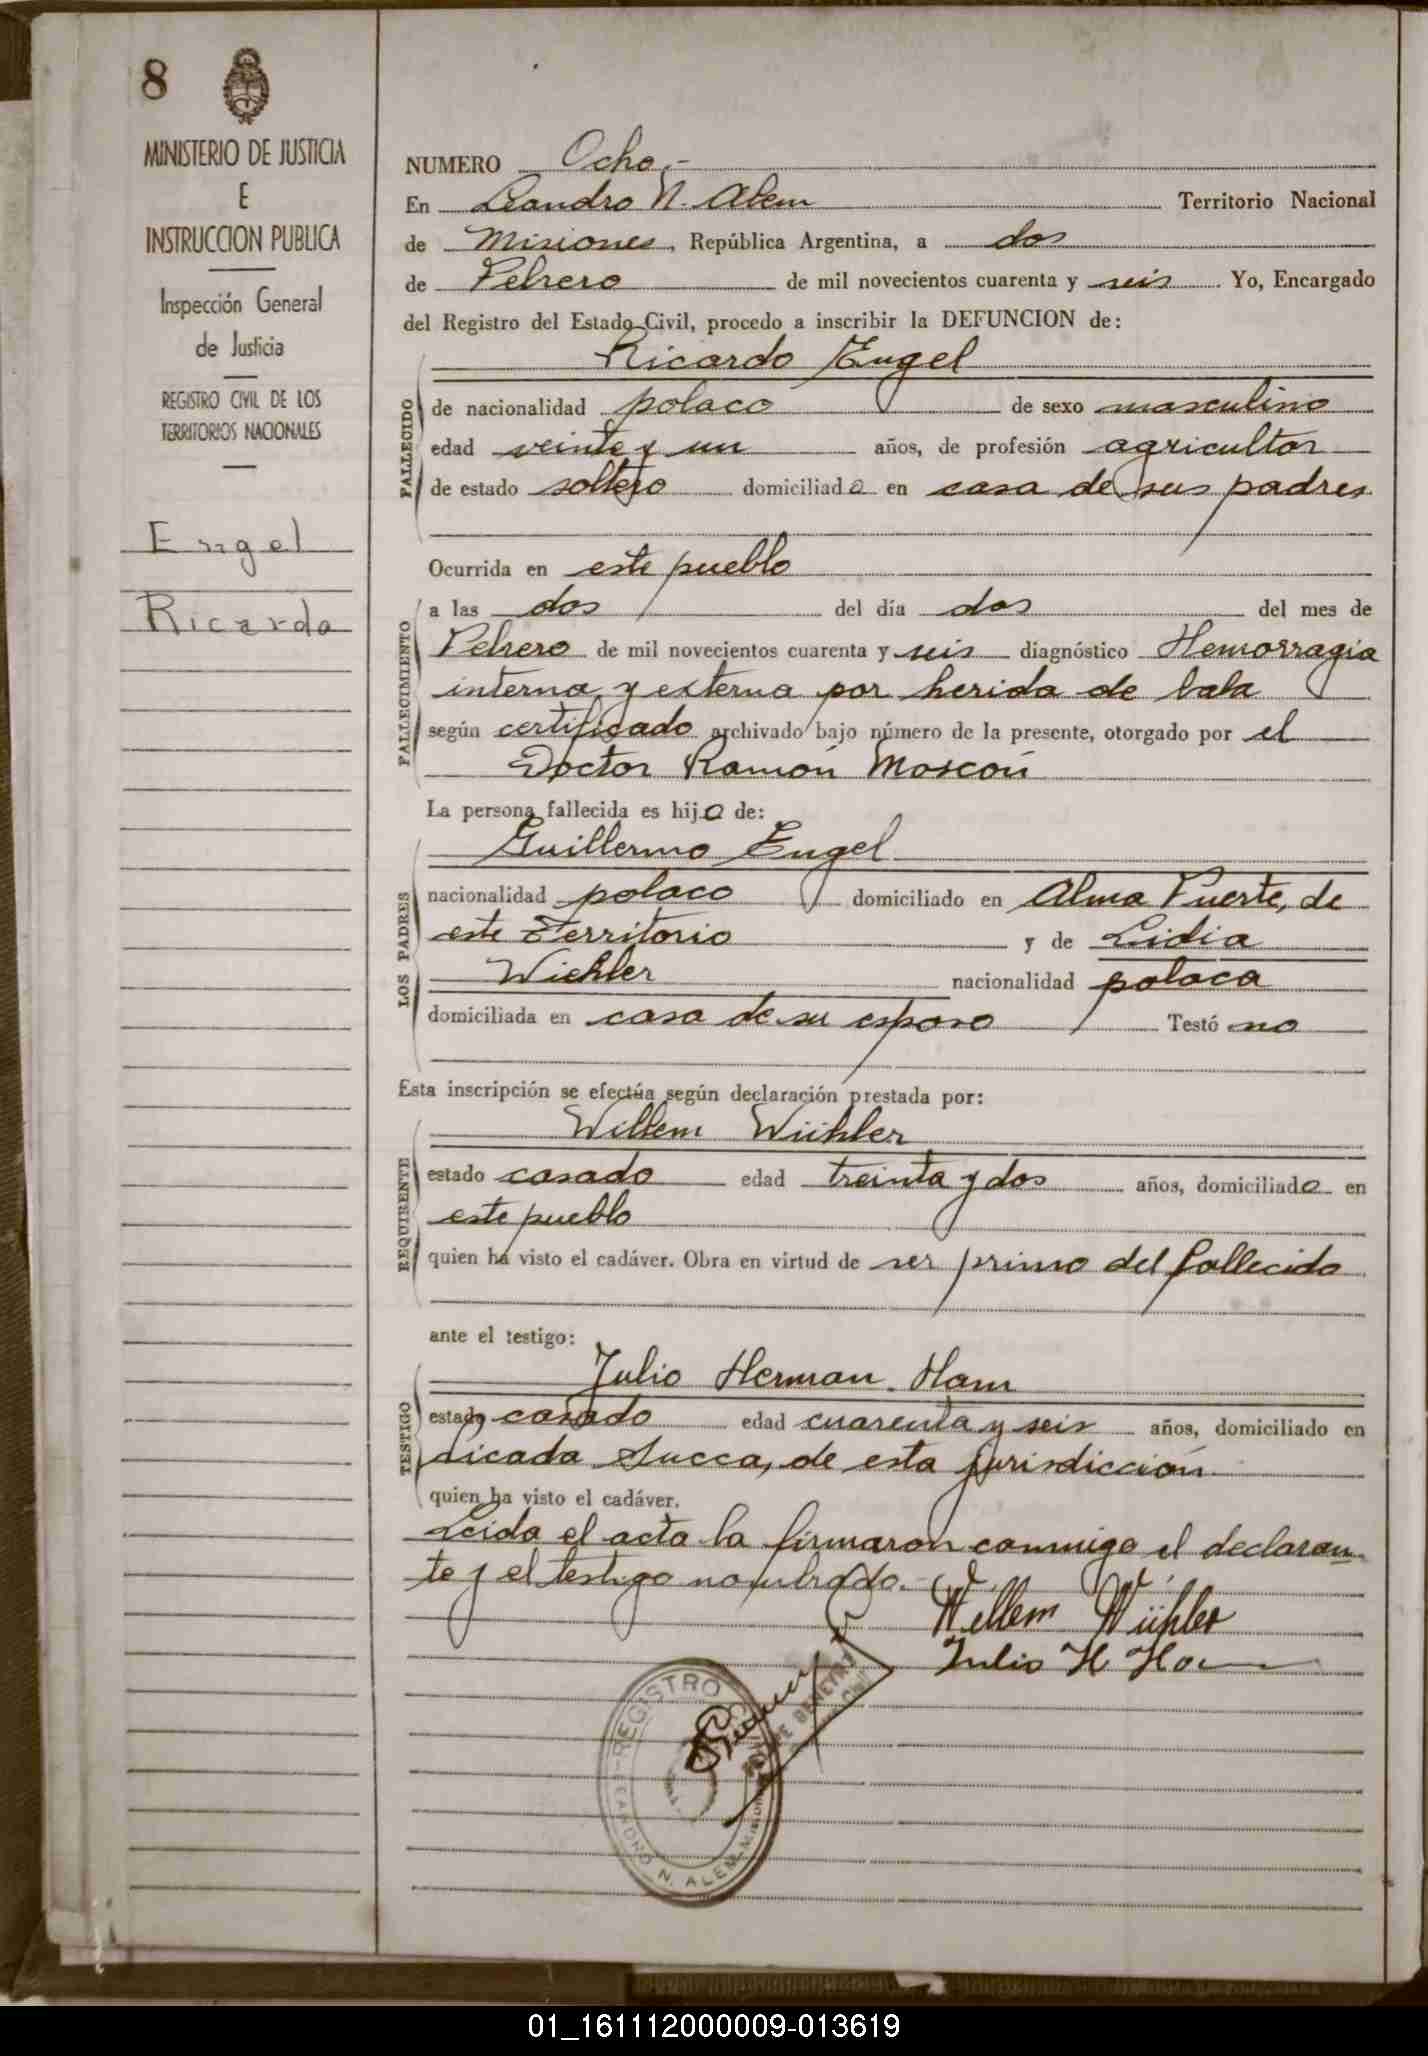 8
MINISTERIO DE JUSTICIA
E
INSTRUCCION PUBLICA
Inspección General
de Justicia
REGISTRO CIVIL DE LOS
TERRITORIOS NACIONALES
Engel
Ricardo
NUMERO Ocho.-
En Leandro N. Alem Territorio Nacional
de Misiones, República Argentina, a dos
de Febrero de mil novecientos cuarenta y seis Yo, Encargado
del Registro del Estado Civil, procedo a inscribir la DEFUNCION de:
Ricardo Engel
FALLECIDO
de nacionalidad polaco de sexo masculino
edad veinte y un años, de profesión agricultor
de estado soltero domiciliado en casa de sus padres
Ocurrida en este pueblo
FALLECIMIENTO
a las dos del día dos del mes de
Febrero de mil novecientos cuarenta y seis diagnóstico Hemorragia
interna y externa por herida de bala
según certificado archivado bajo número de la presente, otorgado por el
Doctor Ramón Moscon
La persona fallecida es hijo de:
Guillermo Engel
LOS PADRES
nacionalidad polaco domiciliado en Alma Fuerte, de
este Territorio y de Lidia
Wiehler nacionalidad polaca
domiciliada en casa de su esposo Testó no
Esta inscripción se efectúa según declaración prestada por:
Willem Wiihler
REQUIRENTE
estado casado edad treinta y dos años, domiciliado en
este pueblo
quien ha visto el cadáver. Obra en virtud de ser primo del fallecido
ante el testigo:
Julio Herman Ham
TESTIGO
estado casado edad cuarenta y seis años, domiciliado en
picada Succa, de esta jurisdicción
quien ha visto el cadáver.
Leida el acta la firmaron conmigo el declaran-
te y el testigo nombrado.-
Willem Wühler
Julio H Ham
REGISTRO CIVIL
LEANDRO N. ALEM - MISIONES
01_161112000009-013619